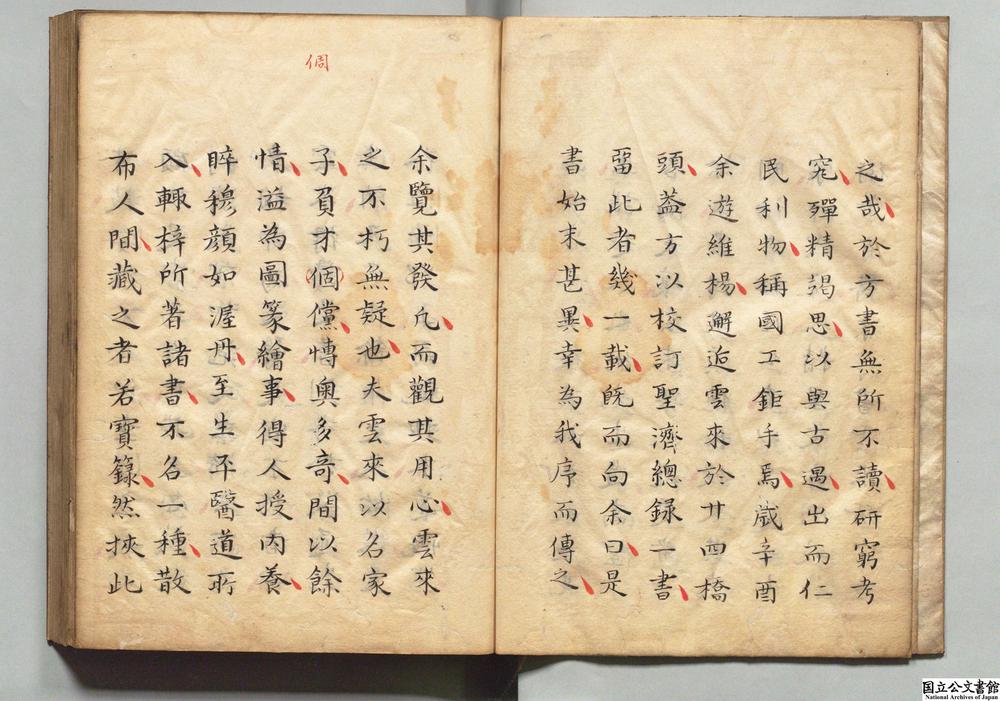 之哉於方書無所不讀研窮考
究殫精竭思以與古遇出而仁
民利物稱國工鉅手焉歲辛酉
余遊維楊邂逅雲來於廿四橋
頭葢方以校訂聖濟總録一書
畱此者幾一載既而向余曰是
書始末甚異幸為我序而傳之
余覽其發凢而觀其用心雲來
之不朽無疑也夫雲來以名家
子負才個儻慱奥多竒間以餘
情溢為圖篆繪事得人授内養
睟穆顔如渥丹至生平醫道所
入輙梓所著諸書不名一種散
布人間藏之者若寳籙然挾此
倜
国立公文書館
National Archives of Japan